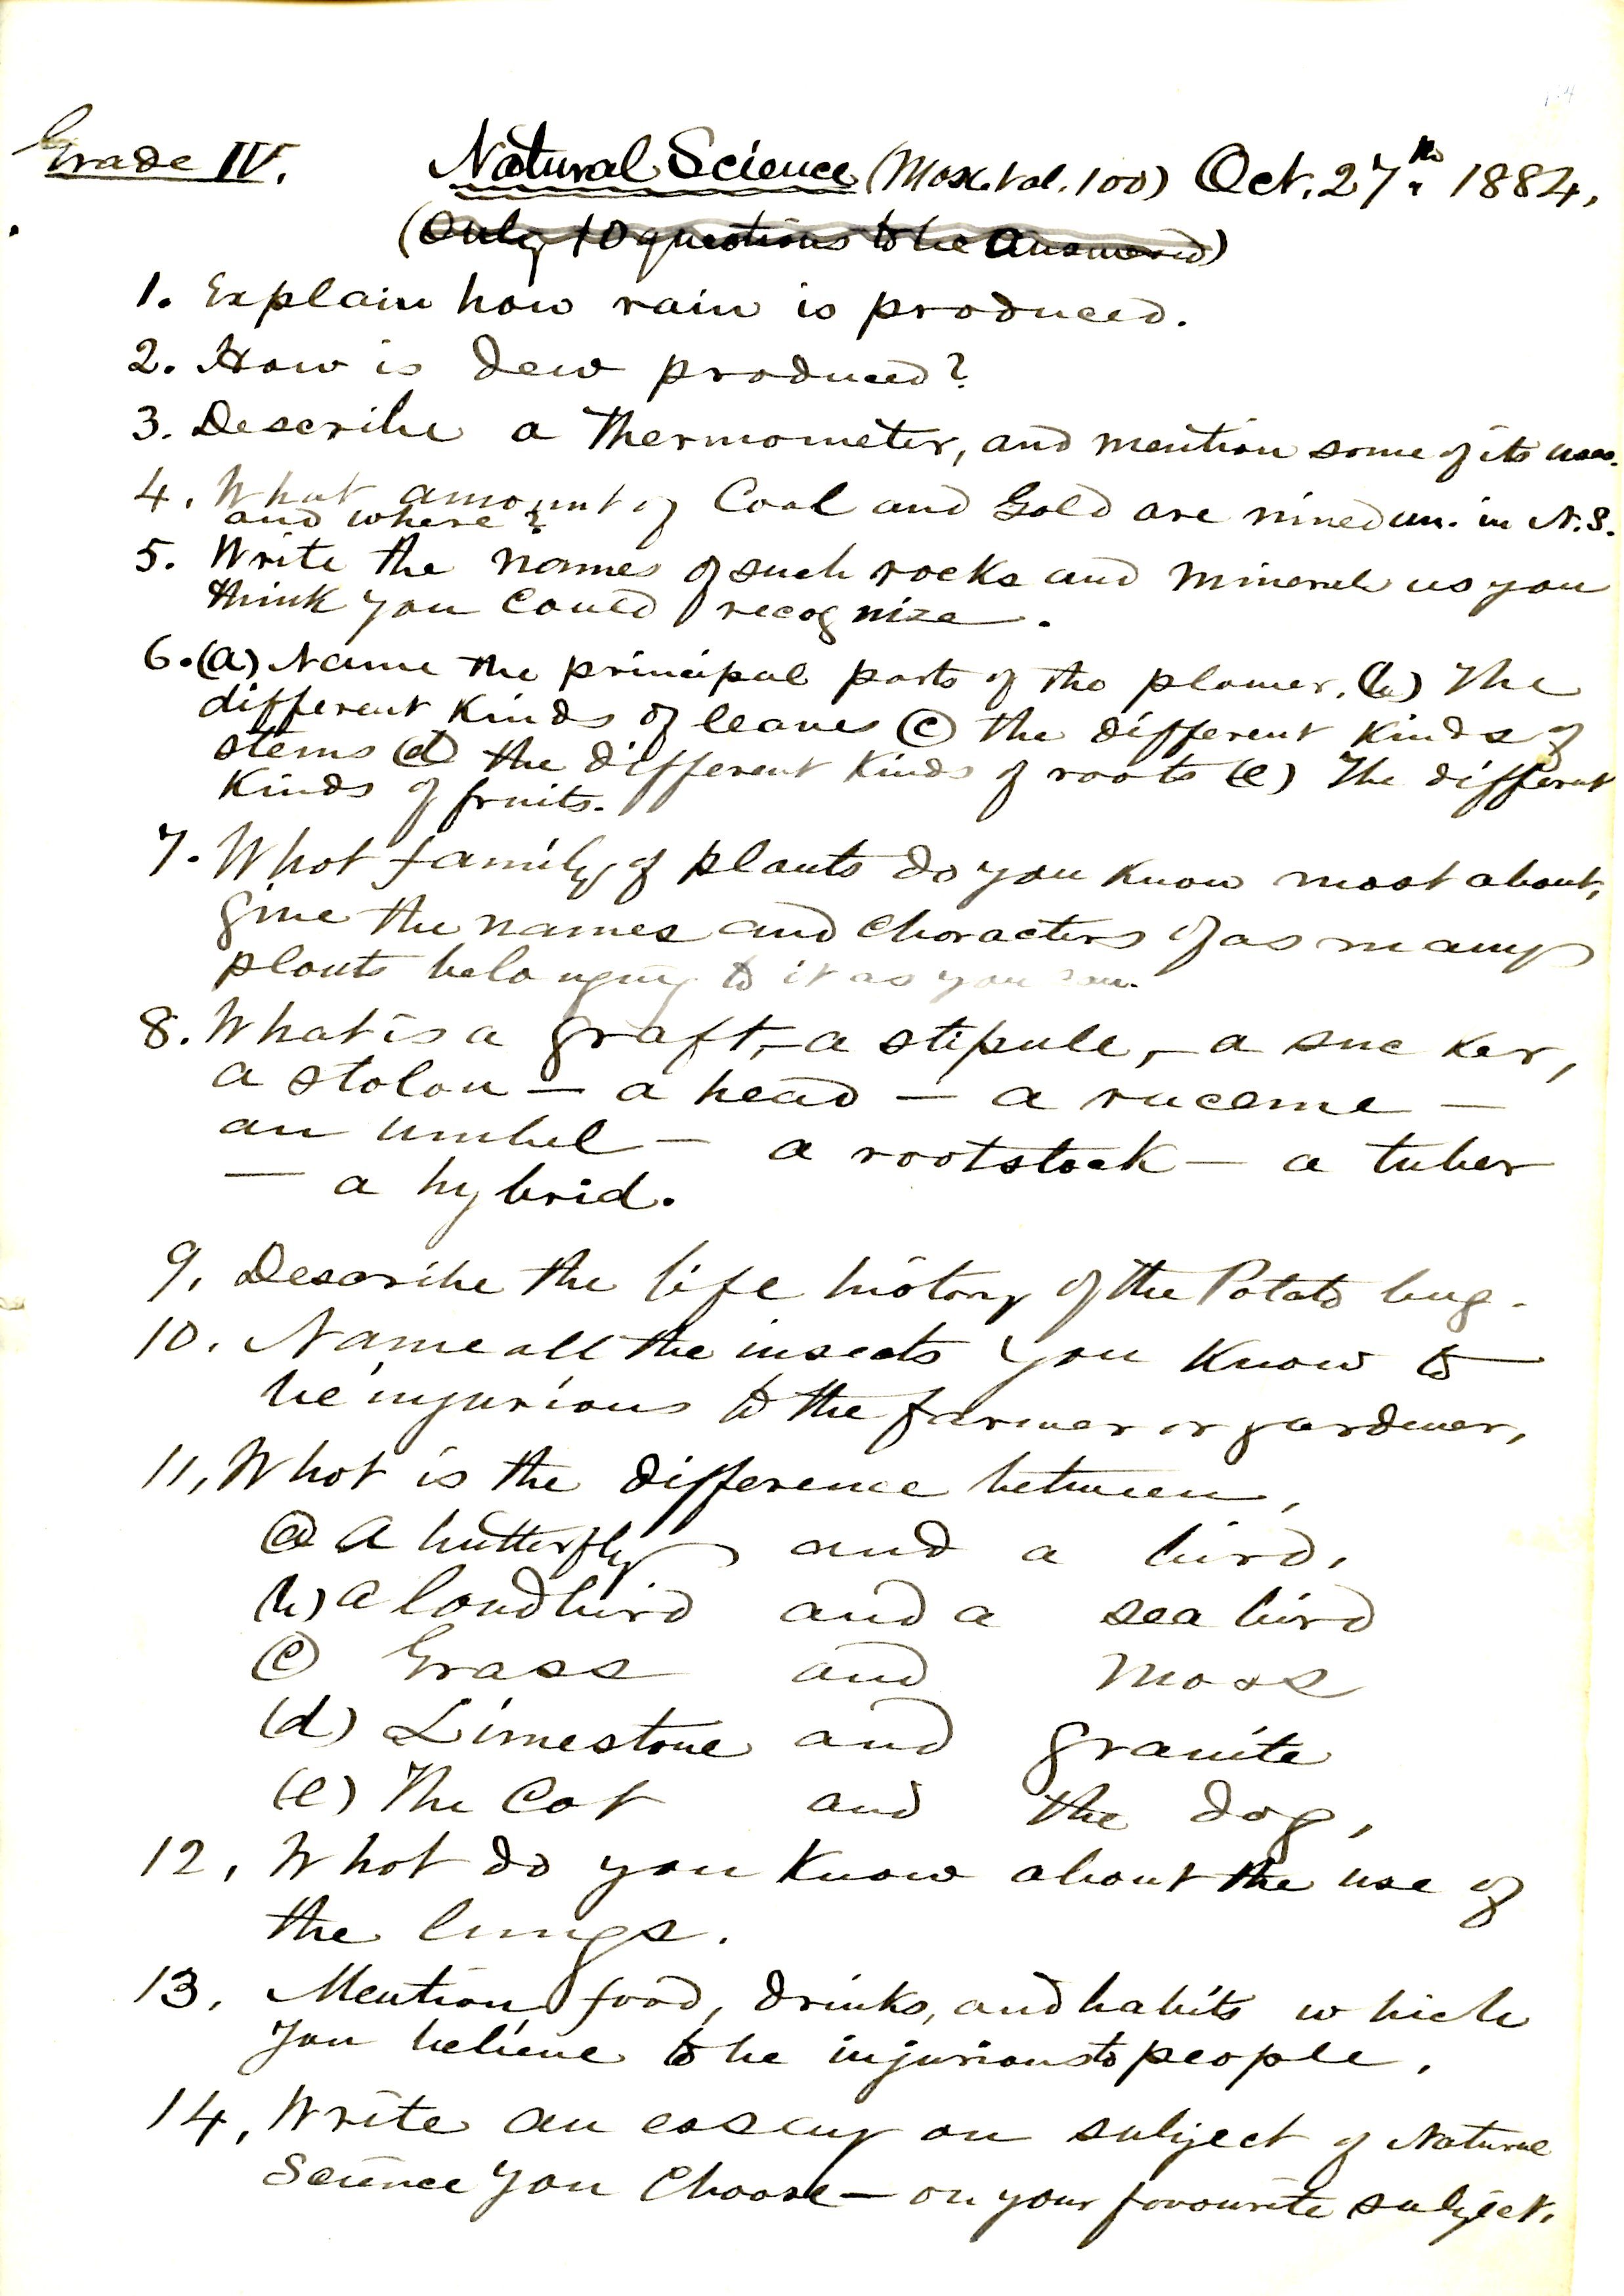 Grade IV. Natural Science (Max. Val. 100) Oct. 27th 1884.
(Only 10 questions to be answered)
1. Explain how rain is produced.
2. How is dew produced?
3. Describe a Thermometer, and mention some of its uses.
4. What amount of Coal and Gold are mined an. in N.S.
and where?
5. Write the names of such rocks and minerals as you
think you could recognize.
6. (a) Name the principal parts of the flower. (b) The
different kinds of leaves (c) the different kinds of
stems (d) the different kinds of roots (e) The different
kinds of fruits.
7. What family of plants do you know most about,
give the names and characters of as many
plants belonging to it as you can.
8. What is a graft, - a stipule, - a sucker,
a stolon — a head — a raceme —
an umbel — a rootstock — a tuber
— a hybrid.
9. Describe the life history of the Potato bug.
10. Name all the insects you know to
be injurious to the farmer or gardener,
11, What is the difference between,
(a) A butterfly and a bird,
(b) a landbird and a sea bird
(c) Grass and Moss
(d) Limestone and granite
(e) The Cat and the dog,
12, What do you know about the use of
the lungs.
13, Mention food, drinks, and habits which
you believe to be injurious to people.
14, Write an essay on subject of Natural
Science you choose — on your favourite subject.